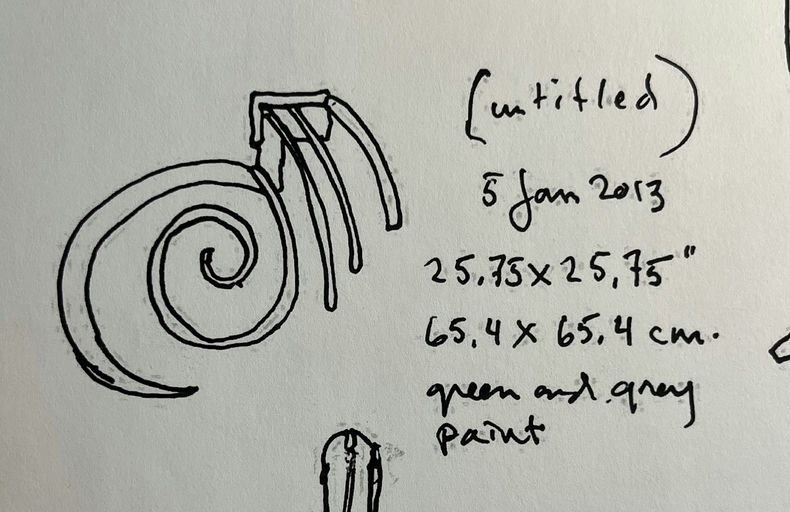 (untitled)
5 Jan 2013
25.75 x 25.75"
65.4 x 65.4 cm.
green and grey
paint